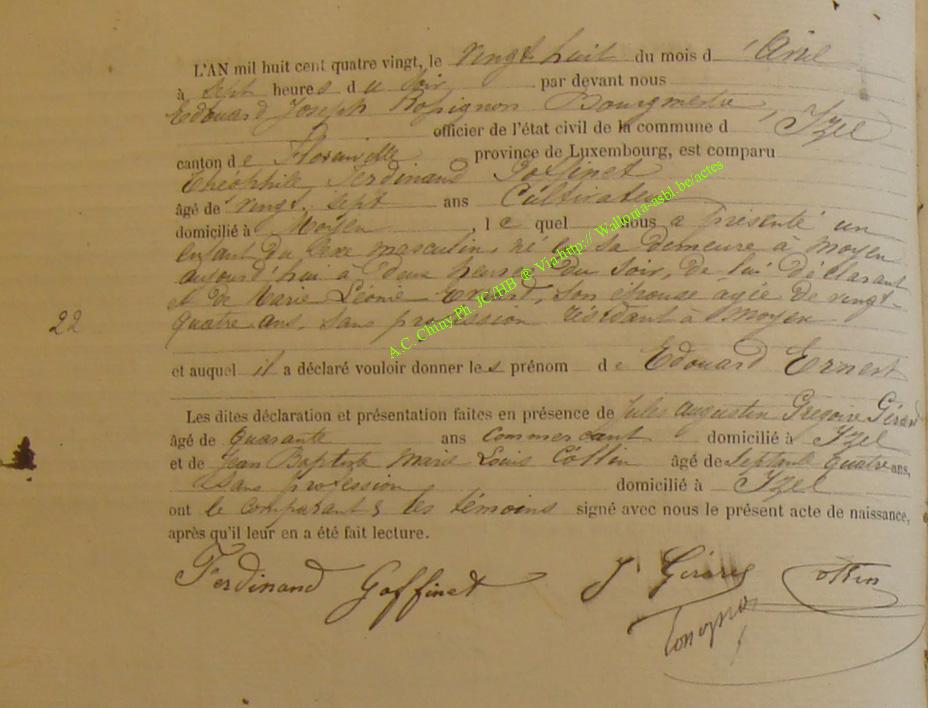 L'AN mil huit cent quatre vingt, le vingt huit du mois d'Avril
à sept heures du soir par devant nous
Edouard Joseph Rossignon Bourgmestre,
officier de l'état civil de la commune d'Izel
canton de Florenville province de Luxembourg, est comparu
Théophile Ferdinand Goffinet
âgé de vingt sept ans Cultivateur
domicilié à Moyen, le quel nous a présenté un
enfant du sexe masculin, né en sa demeure à Moyen
aujourd'hui à deux heures du soir, de lui déclarant
et de Marie Léonie son épouse agée de vingt-
22
quatre ans, sans profession résidant à Moyen
et auquel il a déclaré vouloir donner les prénom de Edouard Ernest
Les dites déclaration et présentation faites en présence de Jules Augustin Grégoire Gérard
âgé de quarante ans commercant domicilié à Izel
et de Jean Baptiste Marie Louis Collin âgé de septante quatre ans,
sans profession domicilié à Izel
ont le comparant & les témoins signé avec nous le présent acte de naissance,
après qu'il leur en a été fait lecture.
Ferdinand Goffinet J Gérard Collin
A.C. Chiny Ph. JC/HB ® Via http:// Wallonia-asbl.be/actes